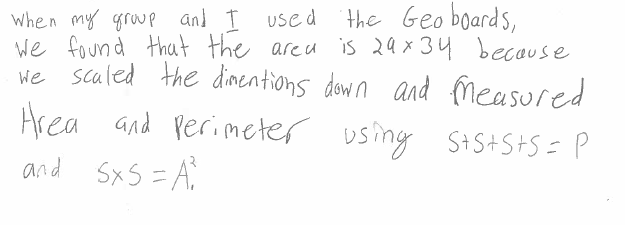 When my group and I used the Geoboards,
we found that the area is 29x34 because
we scaled the dimentions down and measured
Area and perimeter using S+S+S+S = P
and SxS = A².